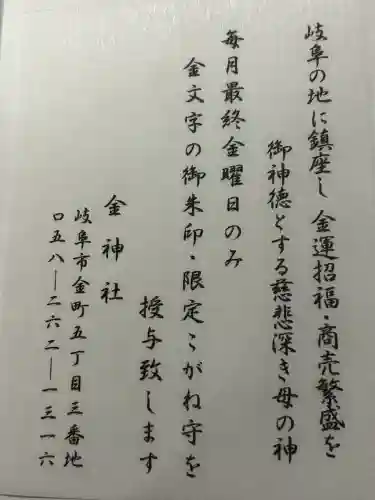 岐阜の地に鎮座し 金運招福・商売繁盛を
御神徳とする慈悲深き母の神
毎月最終金曜日のみ
金文字の御朱印・限定こがね守を
授与致します
金神社
岐阜市金町五丁目三番地
〇五八―二六二―一三一六